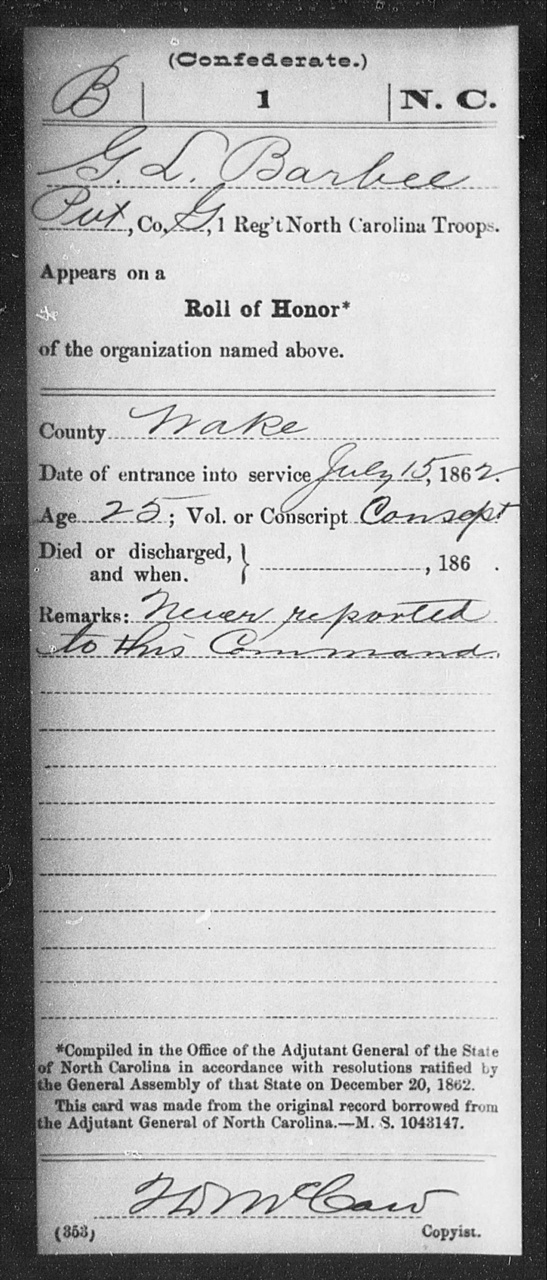 (Confederate.)
B | 1 | N. C.
G. L. Barbee
Pvt, Co. G, 1 Reg't North Carolina Troops.
Appears on a
Roll of Honor*
of the organization named above.
County Wake
Date of entrance into service July 15, 1862.
Age 25; Vol. or Conscript Consept
Died or discharged, }
and when. , 186 .
Remarks: Never reported
to this Command.
*Compiled in the Office of the Adjutant General of the State
of North Carolina in accordance with resolutions ratified by
the General Assembly of that State on December 20, 1862.
This card was made from the original record borrowed from
the Adjutant General of North Carolina.—M. S. 1043147.
McCaw
(353) Copyist.